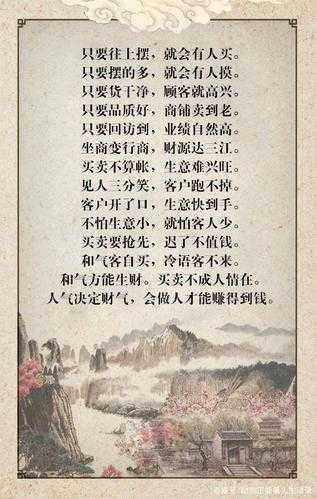 只要往上摆，就会有人买。
只要摆的多，就会有人摸。
只要货干净，顾客就高兴。
只要品质好，商铺卖到老。
只要回访到，业绩自然高。
坐商变行商，财源达三江。
买卖不算帐，生意难兴旺。
见人三分笑，客户跑不掉。
客户开了口，生意快到手。
不怕生意小，就怕客人少。
买卖要抢先，迟了不值钱。
和气客自买，冷语客不来。
和气方能生财。买卖不成人情在。
人气决定财气，会做人才能赚得到钱。